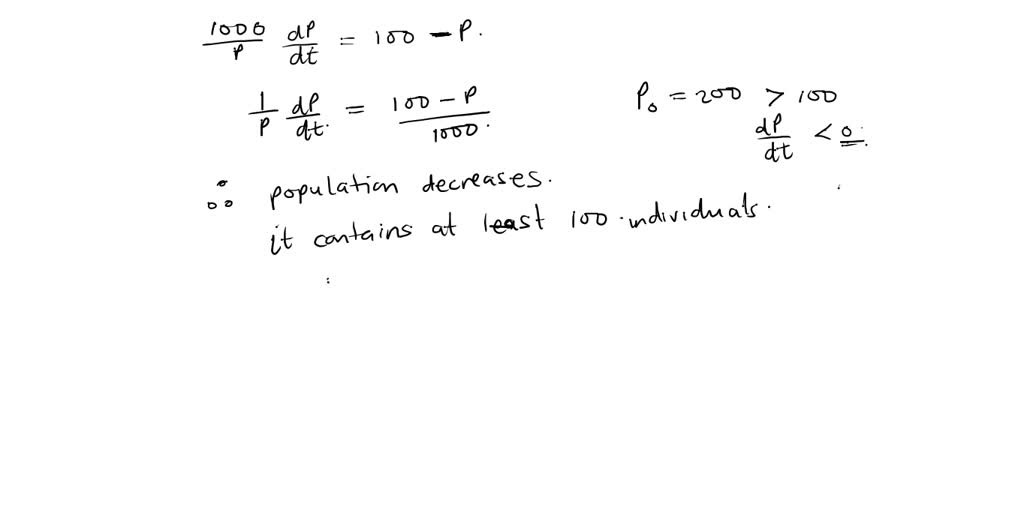 1000/P dP/dt = 100 - P.
1/P dP/dt. = 100 - P/1000.
P₀ = 200 > 100
dP/dt < 0.
∴ population decreases.
it contains at least 100 individuals.